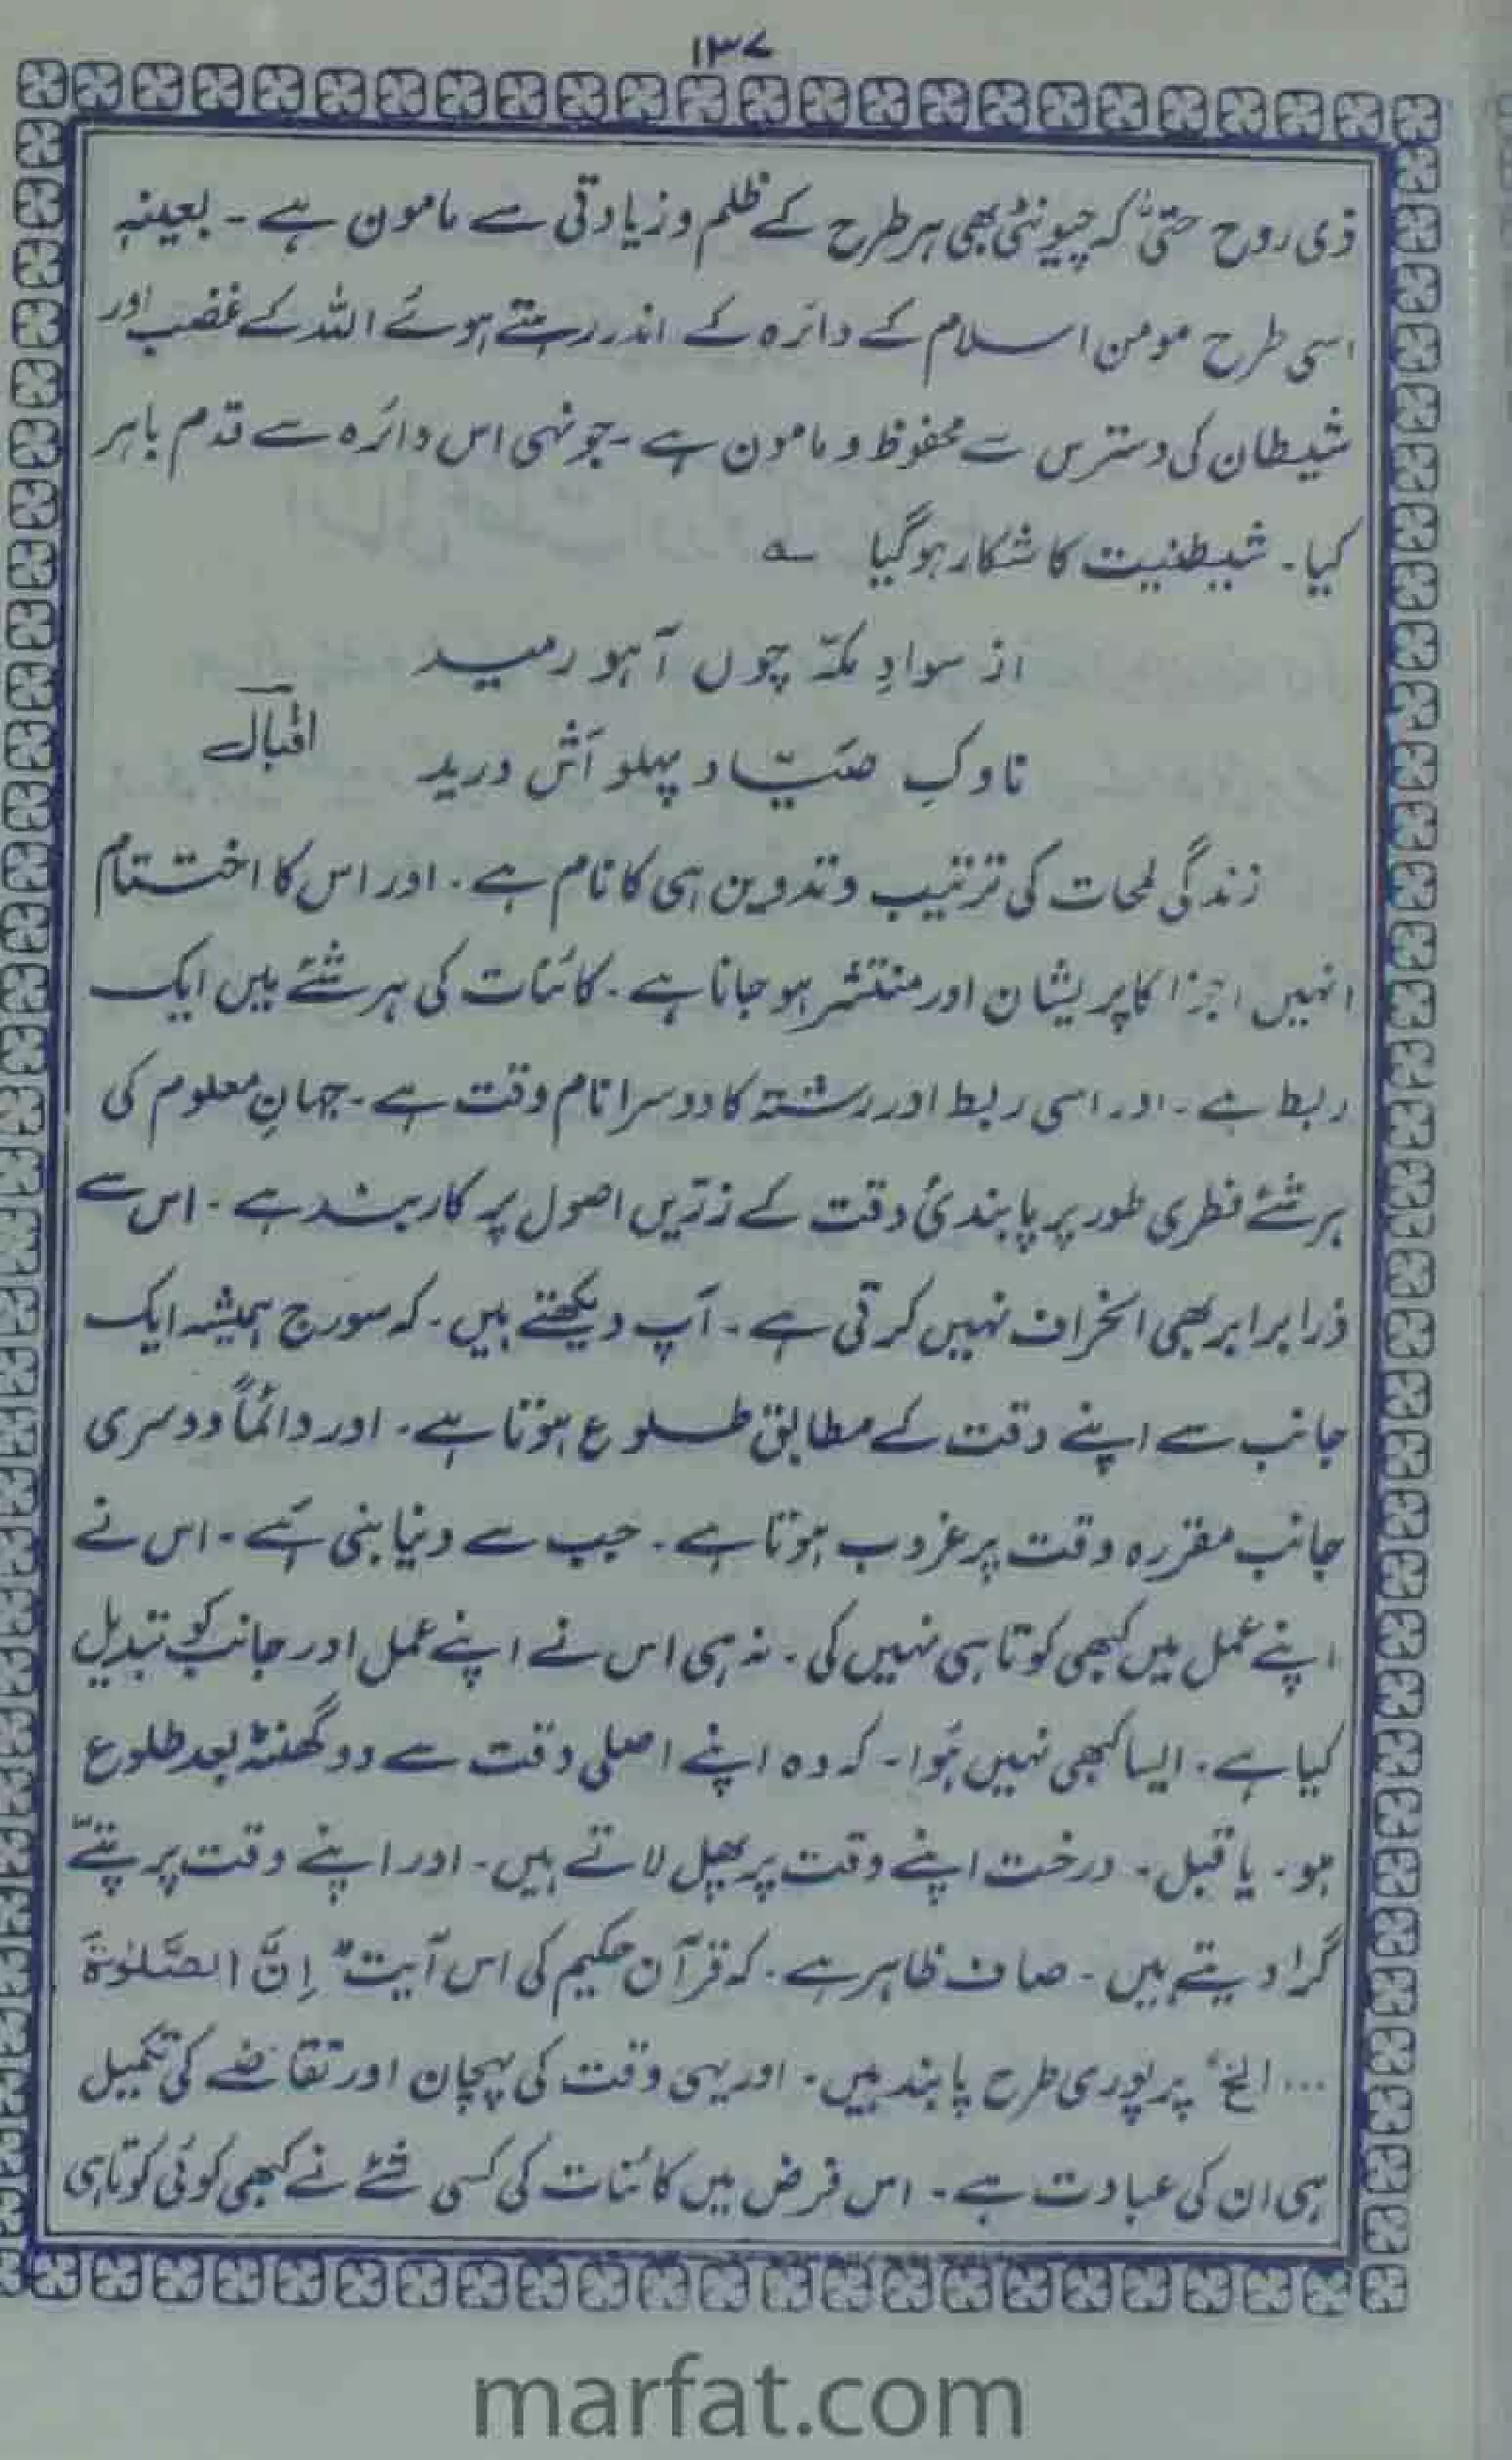 ۱۳۷
ذی روح حتیٰ کہ چیونٹی بھی ہر طرح کے ظلم و زیادتی سے مامون ہے ۔ بعینہٖ
اسی طرح مومن اسلام کے دائرہ کے اندر رہتے ہوئے اللہ کے غضب اور
شیطان کی دسترس سے محفوظ و مامون ہے ۔ جونہی اس دائرہ سے قدم باہر
کیا ۔ شیطنیت کا شکار ہو گیا ؎
از سوادِ مکّہ چوں آہو رمید
ناوکِ صیّاد پہلو اَش درید
اقبالؔ
زندگی لمحات کی ترتیب و تدوین ہی کا نام ہے ۔ اور اس کا اختتام
انہیں اجزا کا پریشان اور منتشر ہو جانا ہے ۔ کائنات کی ہر شئے میں ایک
ربط ہے ۔ اور اسی ربط اور رشتہ کا دوسرا نام وقت ہے ۔ جہانِ معلوم کی
ہر شئے فطری طور پر پابندیٔ وقت کے زرّیں اصول پر کاربند ہے ۔ اس سے
ذرا برابر بھی انحراف نہیں کرتی ہے ۔ آپ دیکھتے ہیں ۔ کہ سورج ہمیشہ ایک
جانب سے اپنے وقت کے مطابق طلوع ہوتا ہے ۔ اور دائماً دوسری
جانب مقررہ وقت پر غروب ہوتا ہے ۔ جب سے دنیا بنی ہَے ۔ اس نے
اپنے عمل میں کبھی کوتاہی نہیں کی ۔ نہ ہی اس نے اپنے عمل اور جانب کو تبدیل
کیا ہے ۔ ایسا کبھی نہیں ہُوا ۔ کہ وہ اپنے اصلی وقت سے دو گھنٹہ بعد طلوع
ہو ۔ یا قبل ۔ درخت اپنے وقت پر پھل لاتے ہیں ۔ اور اپنے وقت پر پتّے
گرا دیتے ہیں ۔ صاف ظاہر ہے ۔ کہ قرآن حکیم کی اس آیت " اِنَّ الصَّلٰوۃَ
... الخ " پر پوری طرح پابند ہیں ۔ اور یہی وقت کی پہچان اور تقاضے کی تکمیل
ہی ان کی عبادت ہے ۔ اس فرض میں کائنات کی کسی شئے نے کبھی کوئی کوتاہی
marfat.com